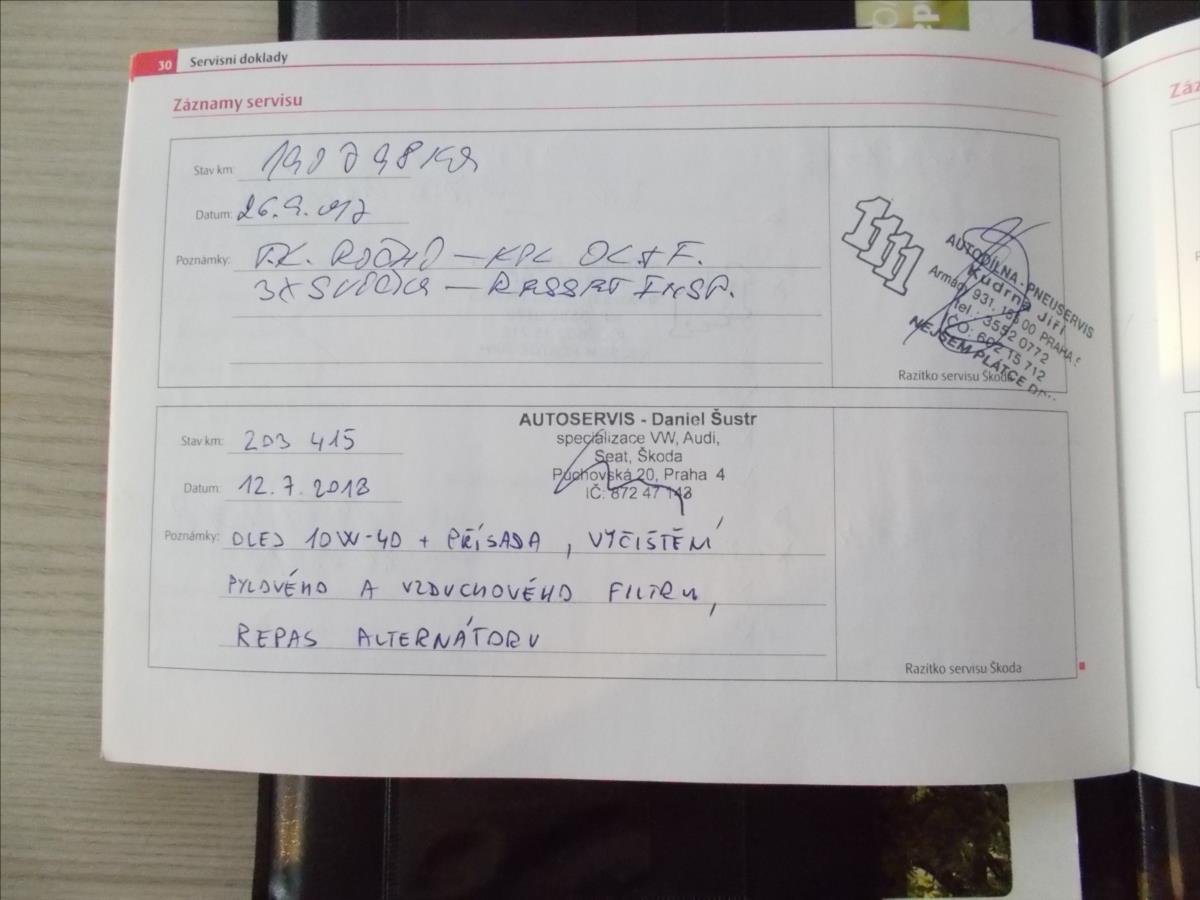 30 Servisní doklady
Záznamy servisu
Stav km:
Datum: 26.9.
Poznámky: T.K. ROČNÍ — KPL OL + F.
3X SVÍČKA — RESSET INSP.
1111
AUTODÍLNA - PNEUSERVIS
Kudrna Jiří
Armády 931, 155 00 PRAHA 5
tel.: 3552 0772
IČO: 602 15 712
NEJSEM PLÁTCE
Razítko servisu Škoda
Stav km: 203 415
Datum: 12.7.2018
AUTOSERVIS - Daniel Šustr
specializace VW, Audi,
Seat, Škoda
Púchovská 20, Praha 4
IČ: 872 47 143
Poznámky: OLEJ 10W-40 + PŘÍSADA, VYČIŠTĚNÍ
PYLOVÉHO A VZDUCHOVÉHO FILTRU,
REPAS ALTERNÁTORU
Razítko servisu Škoda